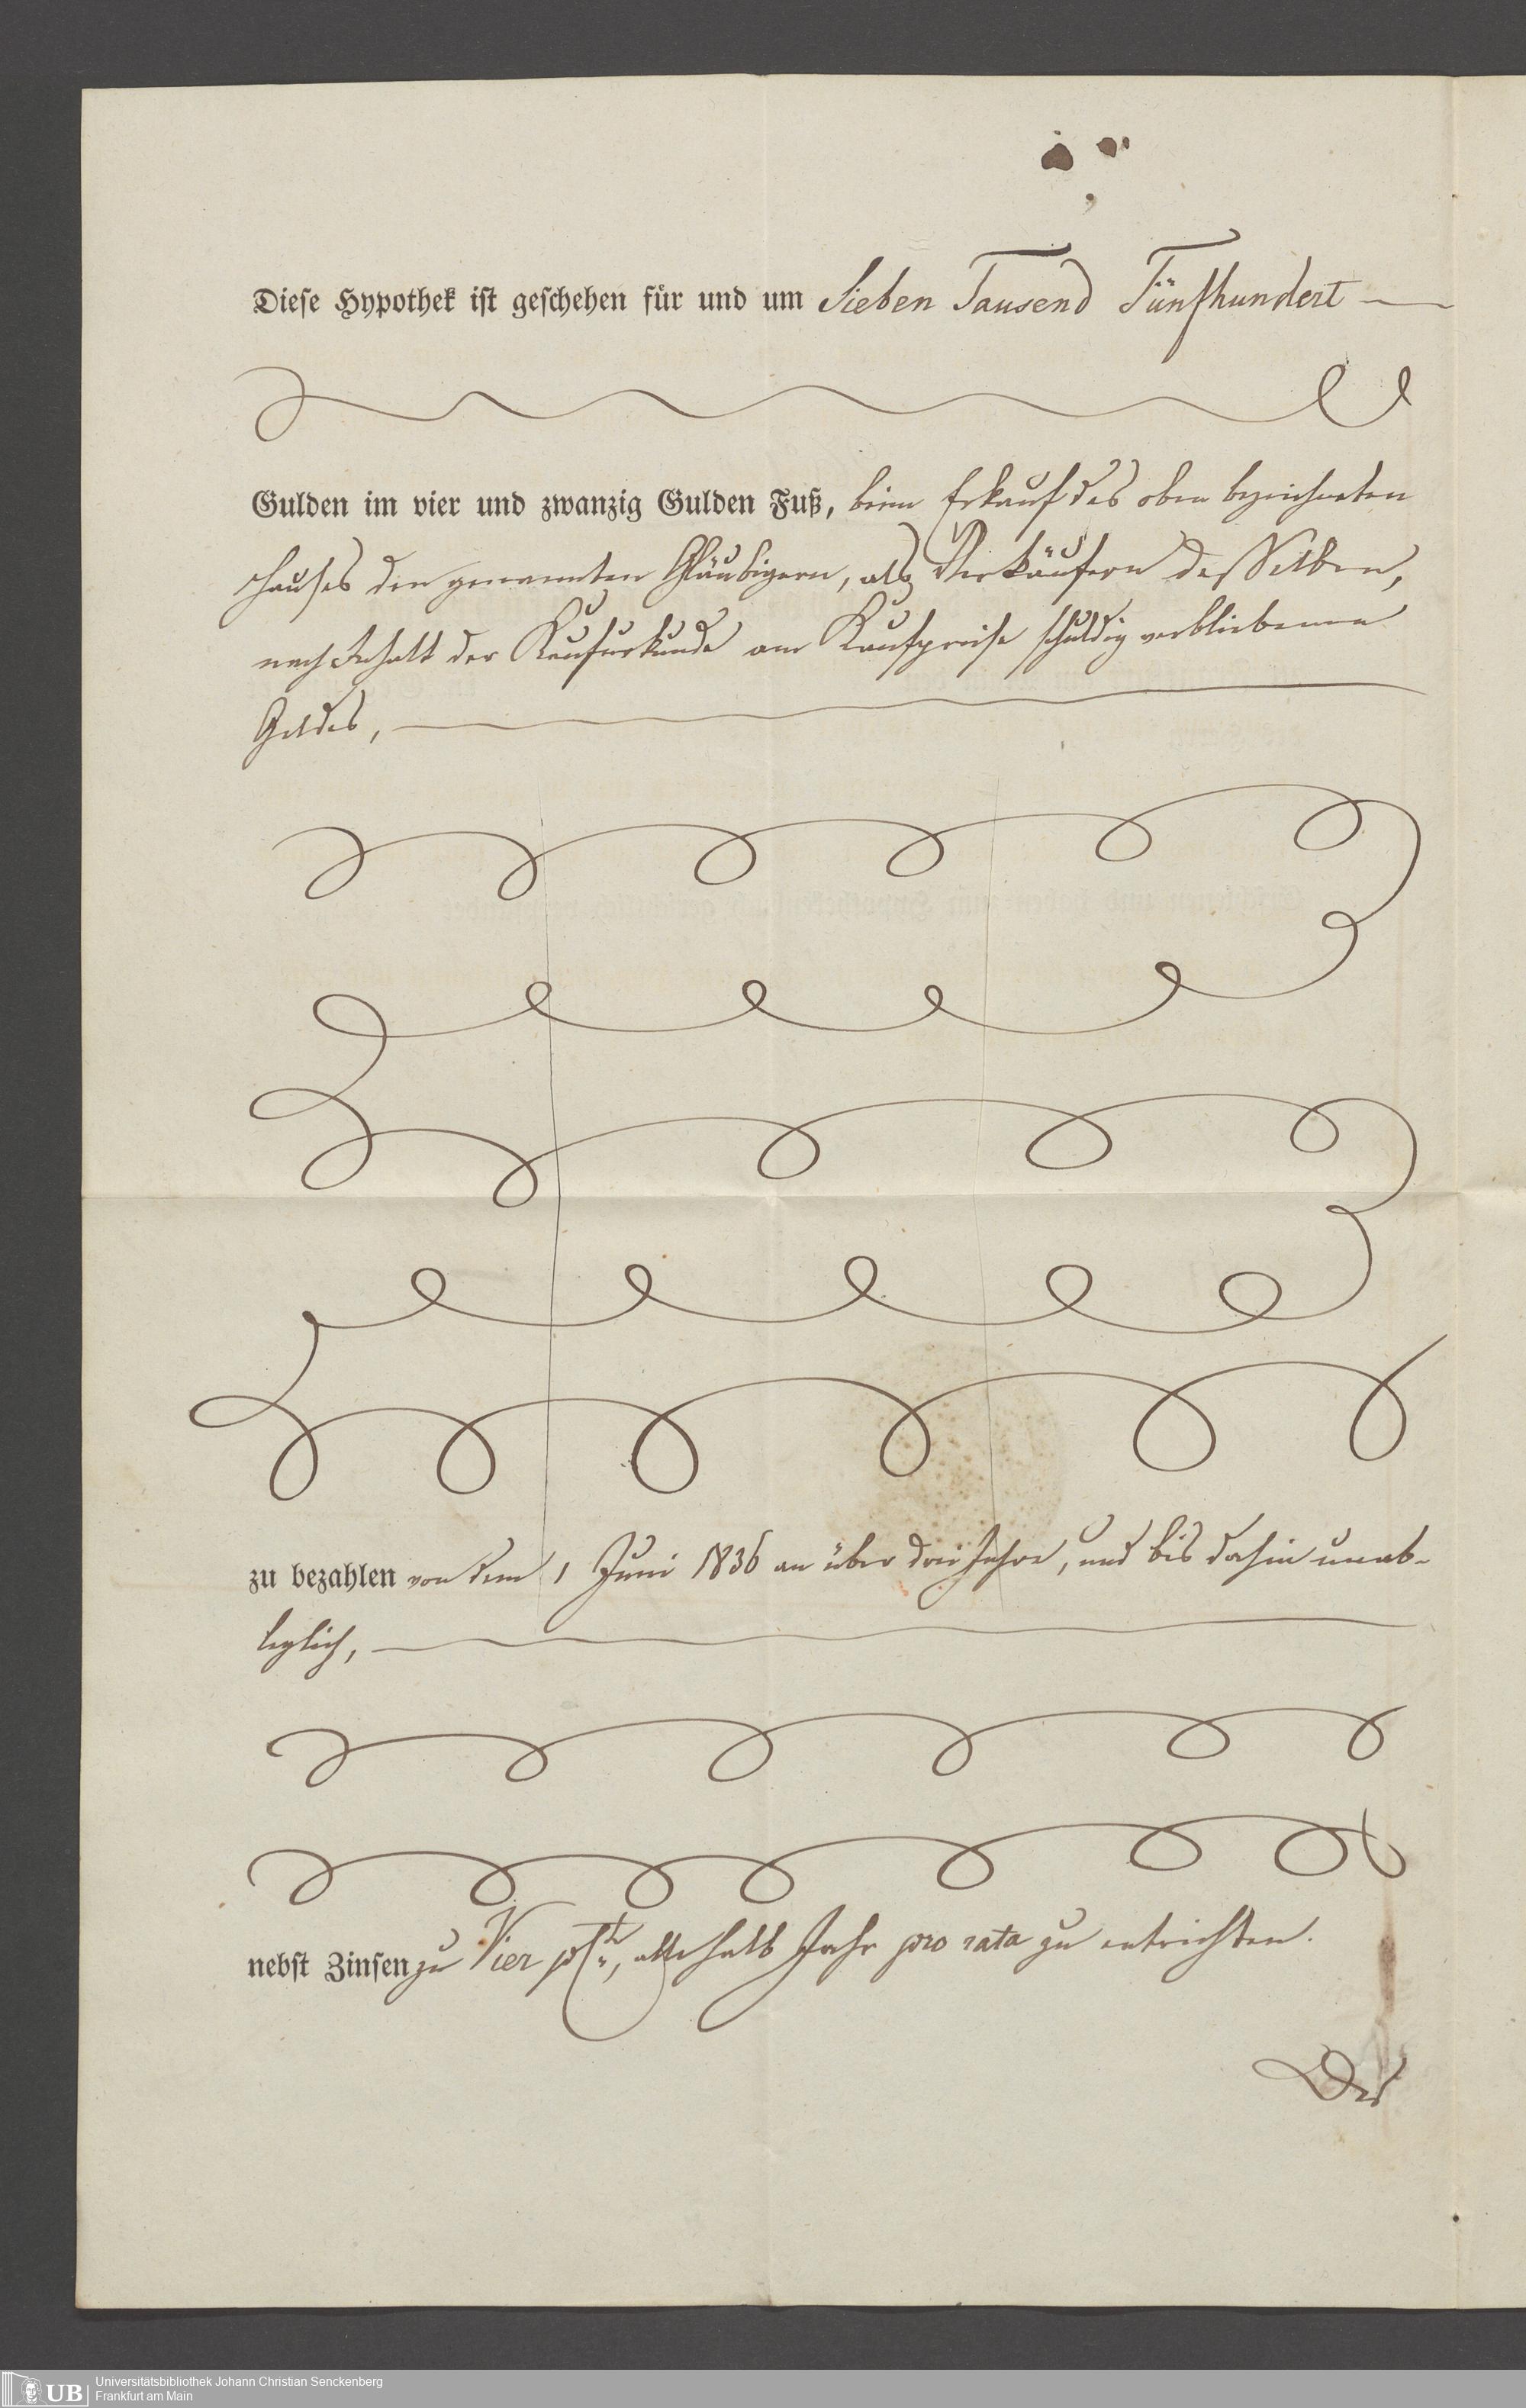 Diese Hypothek ist geschehen für und um Sieben Tausend Fünfhundert
Gulden im vier und zwanzig Gulden Fuß, beim Erkauf des oben bezeichneten
Hauses den genannten Gläubigern, als Verkäufern desselben,
nach Inhalt der Kaufurkunde am Kaufpreise schuldig verbliebenen
Geldes,
zu bezahlen von dem 1 Juni 1836 an über drei Jahre, und bis dahin unab-
leglich,
nebst Zinsen zu Vier pCt., alle halb Jahr pro rata zu entrichten.
Der
UB
Universitätsbibliothek Johann Christian Senckenberg
Frankfurt am Main